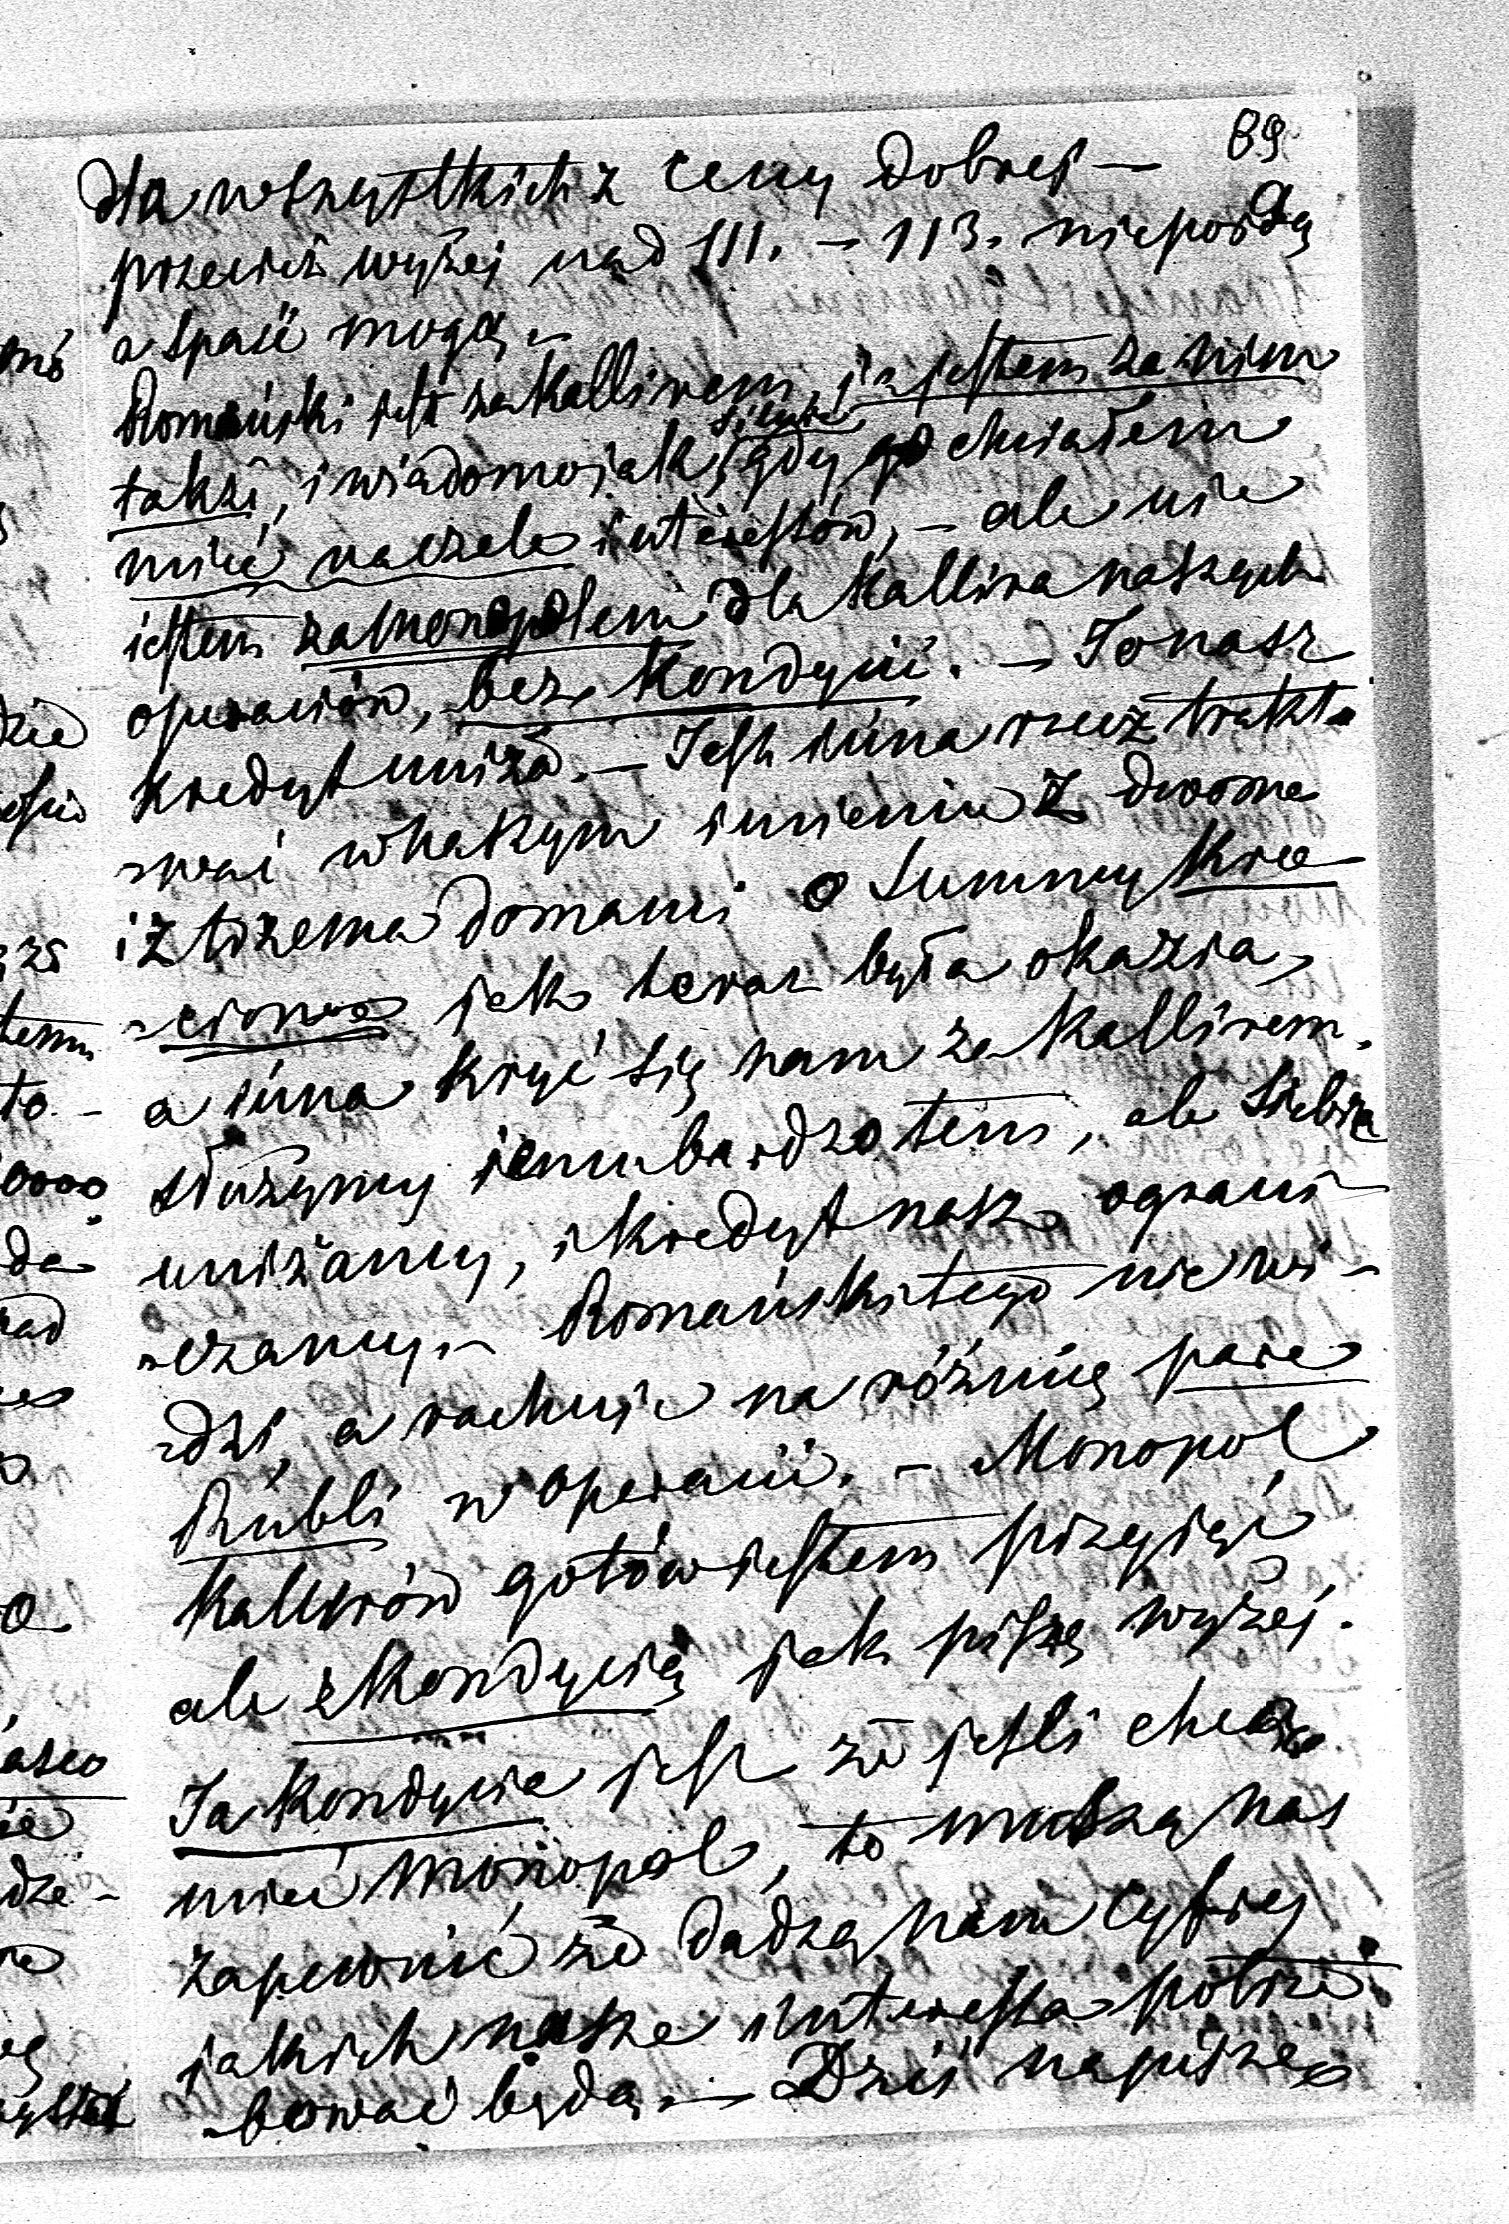 89
dla wszystkich z ceny dobrej —
przecież wyżej nad 111. — 113. niepojdą
a spaść mogą. —
Romański jest za Kallirem, i ja jestem za nim
także, i wiadomo jak silnie gdy go chciałem
mieć na czele interessów, — ale nie
jestem za monopolem dla Kallira naszych
operaciów, bez kondycii. — To nasz
kredyt zniża. — Jest inna rzecz trakto
-wać w naszym imieniu z dwoma
i z trzema domami o Summy kree
-cione jak teraz była okazia,
a inna kryć się nam za Kallirem.
służymy jemu bardzo tem, ale siebie
uniżamy, i kredyt nasz ograni
-czamy. — Romański tego nie wi-
-dzi, a rachuje na różnicę pare
Rubli w operacii. — Monopol
Kallirów gotów jestem przyjąć
ale z kondycią jak piszę wyżej.
Ta kondycia jest że jeśli chcą
mieć monopol, to muszą nas
zapewnić że dadzą nam cyfrę
jakich nasze interessa potrze
-bować będą. — Dziś napiszę